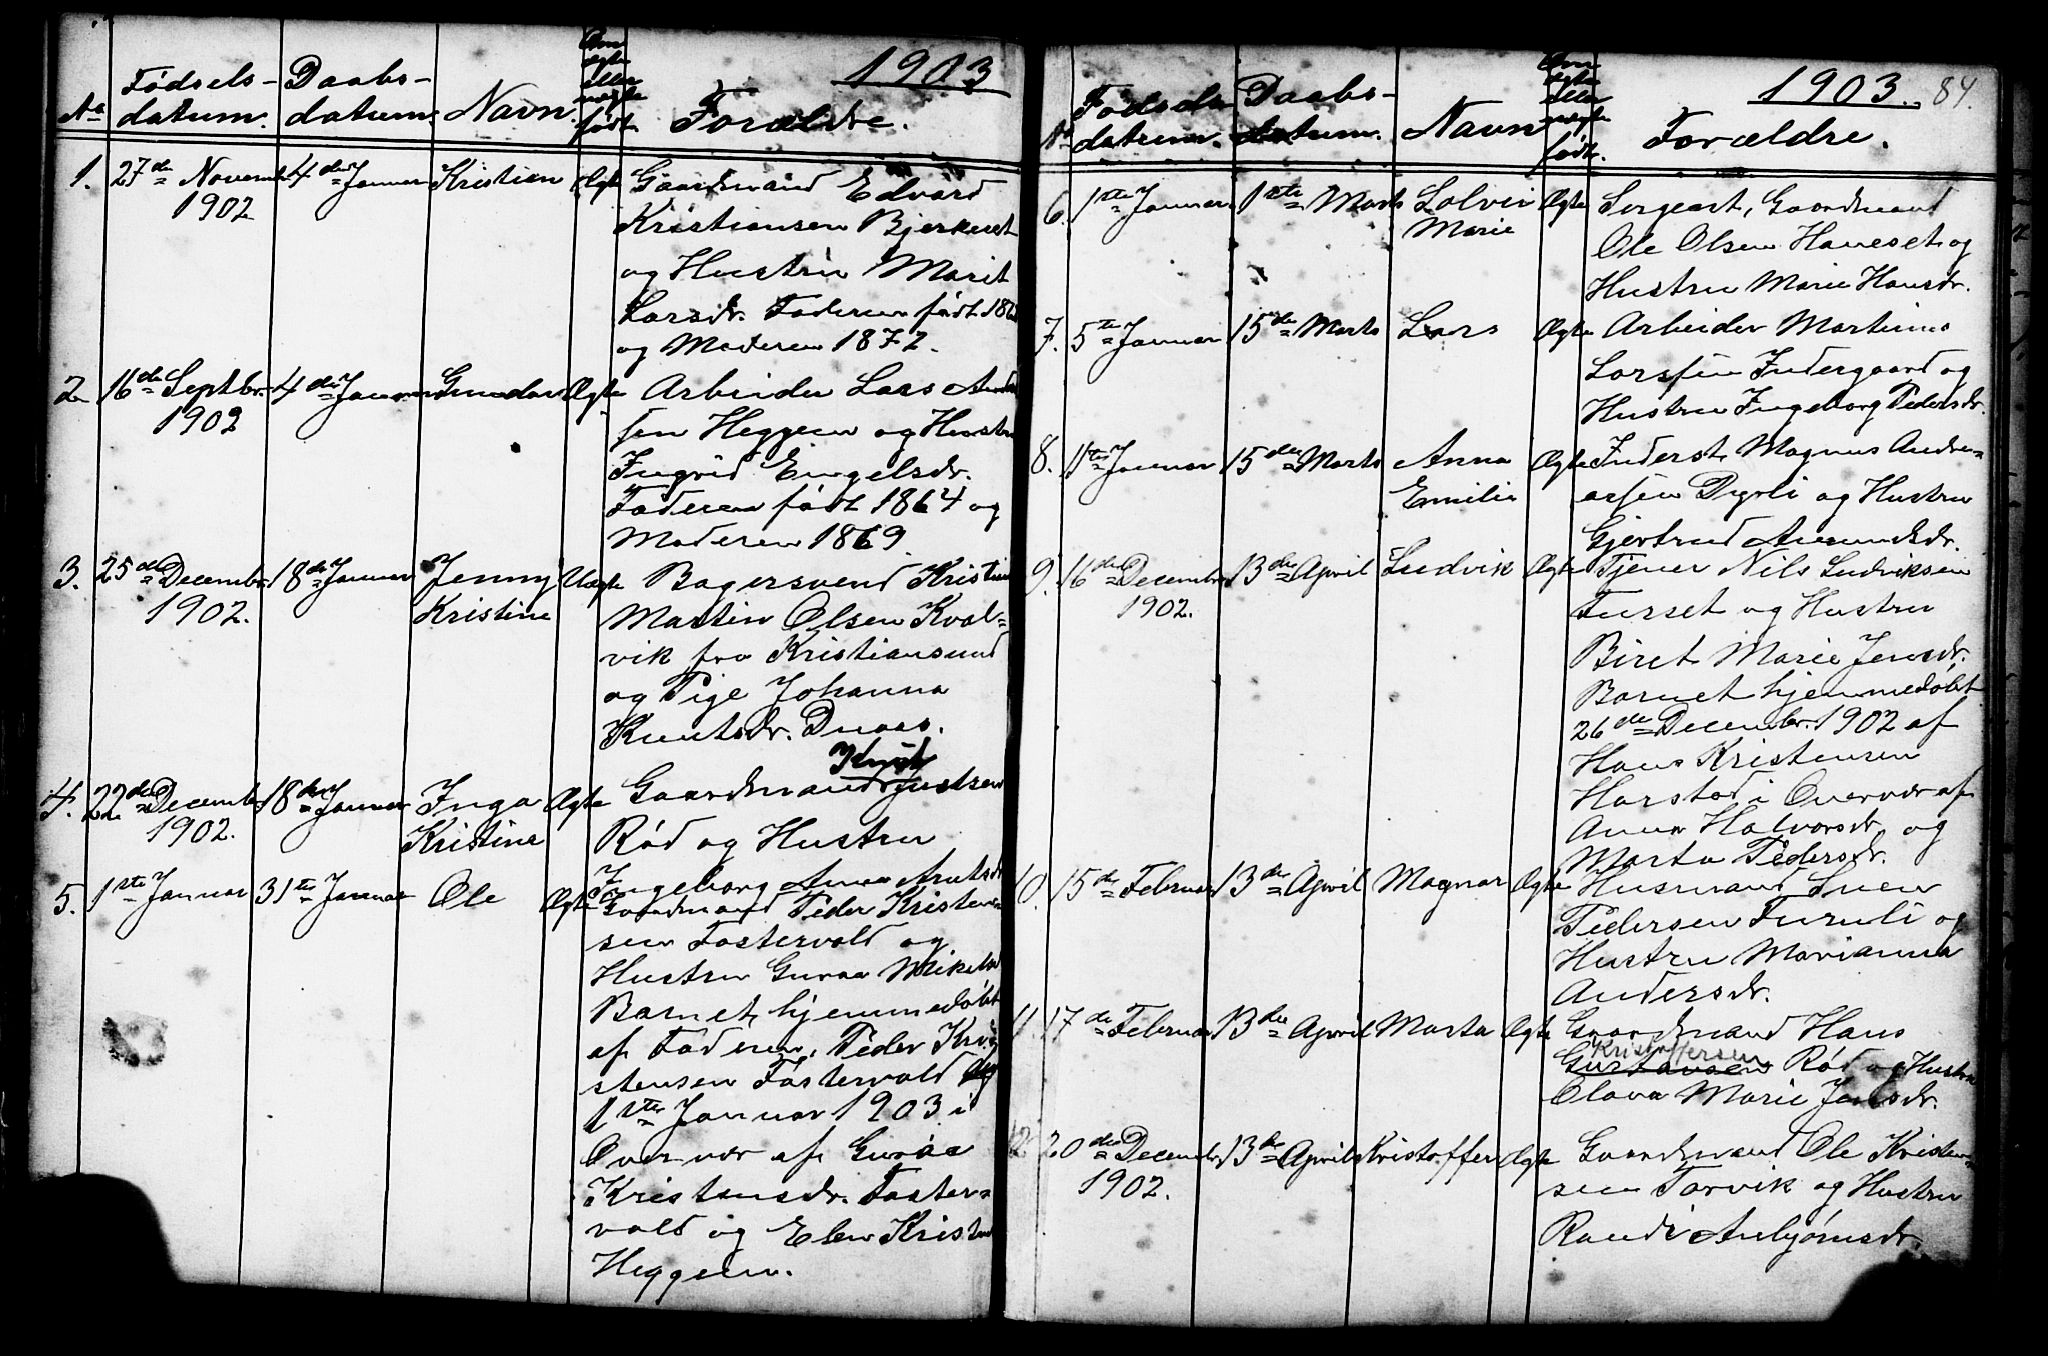 1903
No
Fødsels-
datum.
Daabs-
datum.
Navn.
Om
ægte
eller
uægte
født.
Forældre.
1. 27de Novembr 4de Januar Kristian Ægte Gaardmand Edvard
1902 Kristiansen Bjerkeset
og Hustru Marit
Larsdr. Faderen født
og Moderen 1872.
2 16de Septbr. 4de Januar Gunder Ægte Arbeider Lars
1902 sen Heggem og Hustru
Ingrid Engelsdr.
Faderen født 1864 og
Moderen 1869.
3. 25de Decembr 18de Januar Jenny Uægte Bagersvend Kristian
1902. Kristine Martin Olsen Kval-
vik fra Kristiansund
og Pige Johanna
Knutsdr.
Knut
4. 22de Decembr 18de Januar Inga Ægte Gaardmand Justsen
1902. Kristine Rød og Hustru
Ingeborg Anna Knutsdr
5. 1ste Januar 31te Januar Ole Ægte Gaardmand Peder Kristen-
sen Fostervold og
Hustru Guroa Mikelsd
Barnet hjemmedøbt
af Faderen, Peder Kri-
stensen Fostervold
1ste Januar 1903 i
Overvær af Guroa
Kristensdr. Foster-
vold og Elen Kristensd
Heggem.
1903. 84.
No
Fødsels
datum.
Daabs-
datum.
Navn
Om
ægte
eller
uægte
født.
Forældre.
6. 1ste Januar 1ste Marts Solvei Ægte Sergeant, Gaardmand
Marie Ole Olsen Haneset og
Hustru Marie Hansdr.
7. 5te Januar 15de Marts Lars Ægte Arbeider Martinus
Larssen Indergaard og
Hustru Ingeborg Pedersdr.
8. 11te Januar 15de Marts Anna Ægte Inderst Magnus Andre-
Emilie assen Dyrli og Hustru
Gjertrud Amundsdr.
9. 16de Decembr 13de April Ludvik Ægte Tjener Nils Ludviksen
1902. Furset og Hustru
Beret Marie Jensdr.
Barnet hjemmedøbt
26de Decembr. 1902 af
Hans Kristensen
Harstad i Overvær af
Anna Halvorsdr. og
Marta Pedersdr.
10. 15de Februar 13de April Magnar Ægte Husmand Sven
Pedersen Furuli og
Hustru Marianna
Andersdr.
11. 17de Februar 13de April Marta Ægte Gaardmand Hans
Kristoffersen
Gustavsen Rød og Hustru
Olava Marie Jonsdr.
12. 20de Decembr 13de April Kristoffer Ægte Gaardmand Ole Kristen-
1902. sen Torvik og Hustru
Randi Anbjørnsdr.